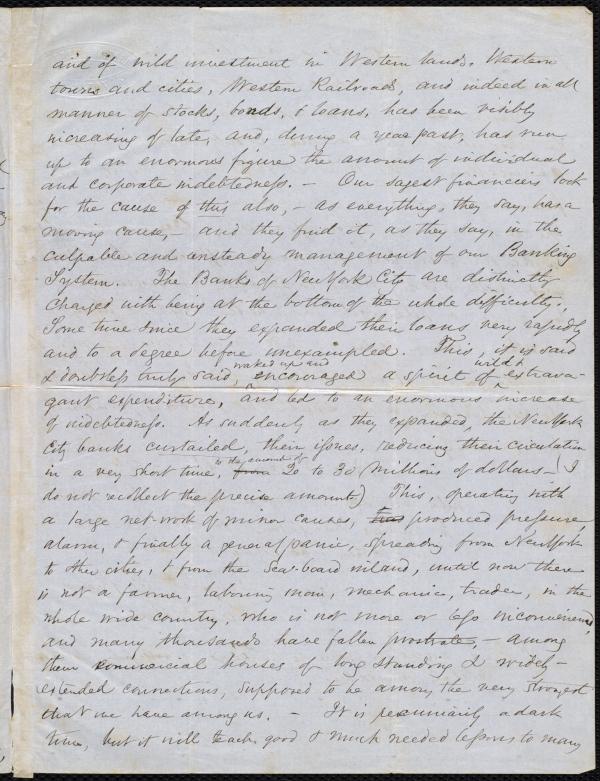 and of wild investment in Western lands, Western
towns and cities, Western Railroads, and indeed in all
manner of stocks, bonds, & loans, has been visibly
increasing of late, and, during a year past, has run
up to an enormous figure the amount of individual
and corporate indebtedness. — Our sagest financiers look
for the cause of this also, — as everything, they say, has a
moving cause, — and they find it, as they say, in the
culpable and unsteady management of our Banking
System. The Banks of New York City are distinctly
charged with being at the bottom of the whole difficulty.
Some time since they expanded their loans very rapidly
and to a degree before unexampled. This, it is said
waked up and wild &
& doubtless truly said, encouraged a spirit of extrava-
gant expenditure, and led to an enormous increase
of indebtedness. As suddenly as they expanded, the New York
City banks curtailed, their issues, reducing their circulation
to the amount of
in a very short time, from 20 to 30 Millions of dollars — (I
do not recollect the precise amount) This, operating with
a large net-work of minor causes, has produced pressure
alarm, & finally a general panic, spreading from New York
to other cities, & from the Sea-board inland, until now there
is not a farmer, labouring man, mechanic, trader, in the
whole wide country, who is not more or less inconvenienced,
and many thousands have fallen prostrate, — among
them commercial houses of long standing & widely-
extended connections, supposed to be among the very strongest
that we have among us. — It is pecuniarily a dark
time, but it will teach good & much needed lessons to many